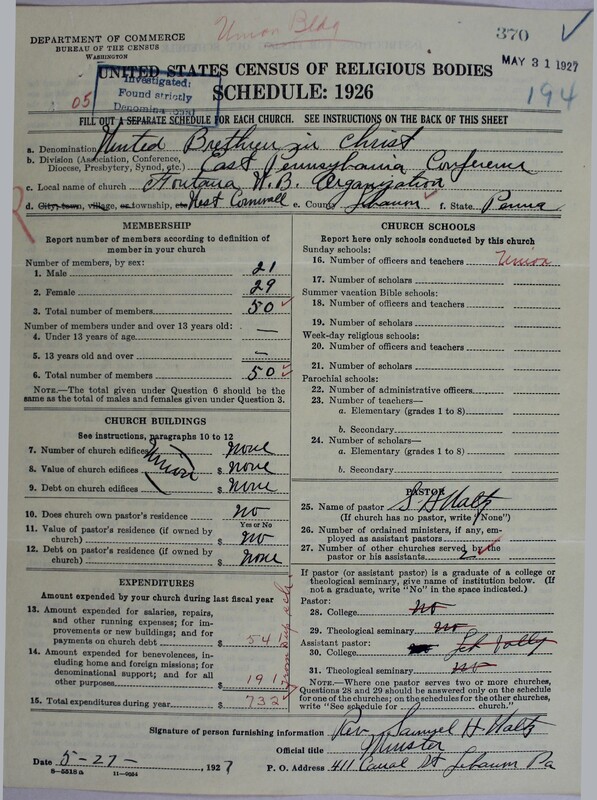 Union Bldg
370
DEPARTMENT OF COMMERCE
BUREAU OF THE CENSUS
WASHINGTON
MAY 31 1927
UNITED STATES CENSUS OF RELIGIOUS BODIES
SCHEDULE: 1926
Investigated:
Found strictly
Denominational
05
194
FILL OUT A SEPARATE SCHEDULE FOR EACH CHURCH. SEE INSTRUCTIONS ON THE BACK OF THIS SHEET
a. Denomination United Brethren in Christ
b. Division (Association, Conference, Diocese, Presbytery, Synod, etc.) East Pennsylvania Conference
c. Local name of church Fontana U.B. Organization
d. City, town, village, or township, etc. West Cornwall e. County Lebanon f. State Penna
MEMBERSHIP
Report number of members according to definition of
member in your church
Number of members, by sex:
1. Male 21
2. Female 29
3. Total number of members 50
Number of members under and over 13 years old:
4. Under 13 years of age —
5. 13 years old and over —
6. Total number of members 50
NOTE.—The total given under Question 6 should be
same as the total of males and females given under Question 3.
CHURCH BUILDINGS
See instructions, paragraphs 10 to 12
7. Number of church edifices none
8. Value of church edifices Union $ none
9. Debt on church edifices $ none
10. Does church own pastor's residence? no
Yes or No
11. Value of pastor's residence (if owned by
church) $ no
12. Debt on pastor's residence (if owned by
church) $ none
EXPENDITURES
Amount expended by your church during last fiscal year
13. Amount expended for salaries, repairs,
and other running expenses; for im-
provements or new buildings; and for
payments on church debt $ 541
14. Amount expended for benevolences, in-
cluding home and foreign missions; for
denominational support; and for all
other purposes $ 191
15. Total expenditures during year $ 732
CHURCH SCHOOLS
Report here only schools conducted by this church
Sunday schools:
16. Number of officers and teachers Union
17. Number of scholars
Summer vacation Bible schools:
18. Number of officers and teachers
19. Number of scholars
Week-day religious schools:
20. Number of officers and teachers
21. Number of scholars
Parochial schools:
22. Number of administrative officers
23. Number of teachers—
a. Elementary (grades 1 to 8)
b. Secondary
24. Number of scholars—
a. Elementary (grades 1 to 8)
b. Secondary
PASTOR
25. Name of pastor S H Waltz
(If church has no pastor, write "None")
26. Number of ordained ministers, if any, em-
ployed as assistant pastors
27. Number of other churches served by the
pastor or his assistants 2
If pastor (or assistant pastor) is a graduate of a college or
theological seminary, give name of institution below. (If
not a graduate, write "No" in the space indicated.)
Pastor:
28. College no
29. Theological seminary no
Assistant pastor:
30. College
31. Theological seminary no
NOTE.—Where one pastor serves two or more churches,
Questions 28 and 29 should be answered only on the schedule
for one of the churches; on the schedules for the other churches,
write "See schedule for church."
Signature of person furnishing information Rev. Samuel H Waltz
Official title Minister
Date 5-27-, 1927
P. O. Address 411 Canal St Lebanon Pa
8-5518a 11-9094